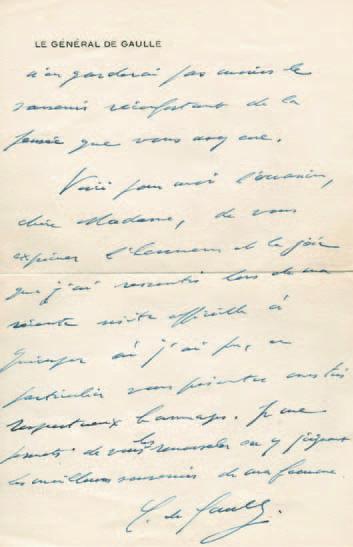 LE GÉNÉRAL DE GAULLE
n'en garderai pas moins le
souvenir réconfortant de la
pensée que vous avez eue.
Voici pour moi l'occasion,
chère Madame, de vous
exprimer l'honneur et la joie
que j'ai ressentis lors de ma
récente visite officielle à
où j'ai pu, en
particulier vous présenter mes très
respectueux hommages. Je me
permets de vous les renouveler en y joignant
les meilleurs souvenirs de ma femme
C. de Gaulle